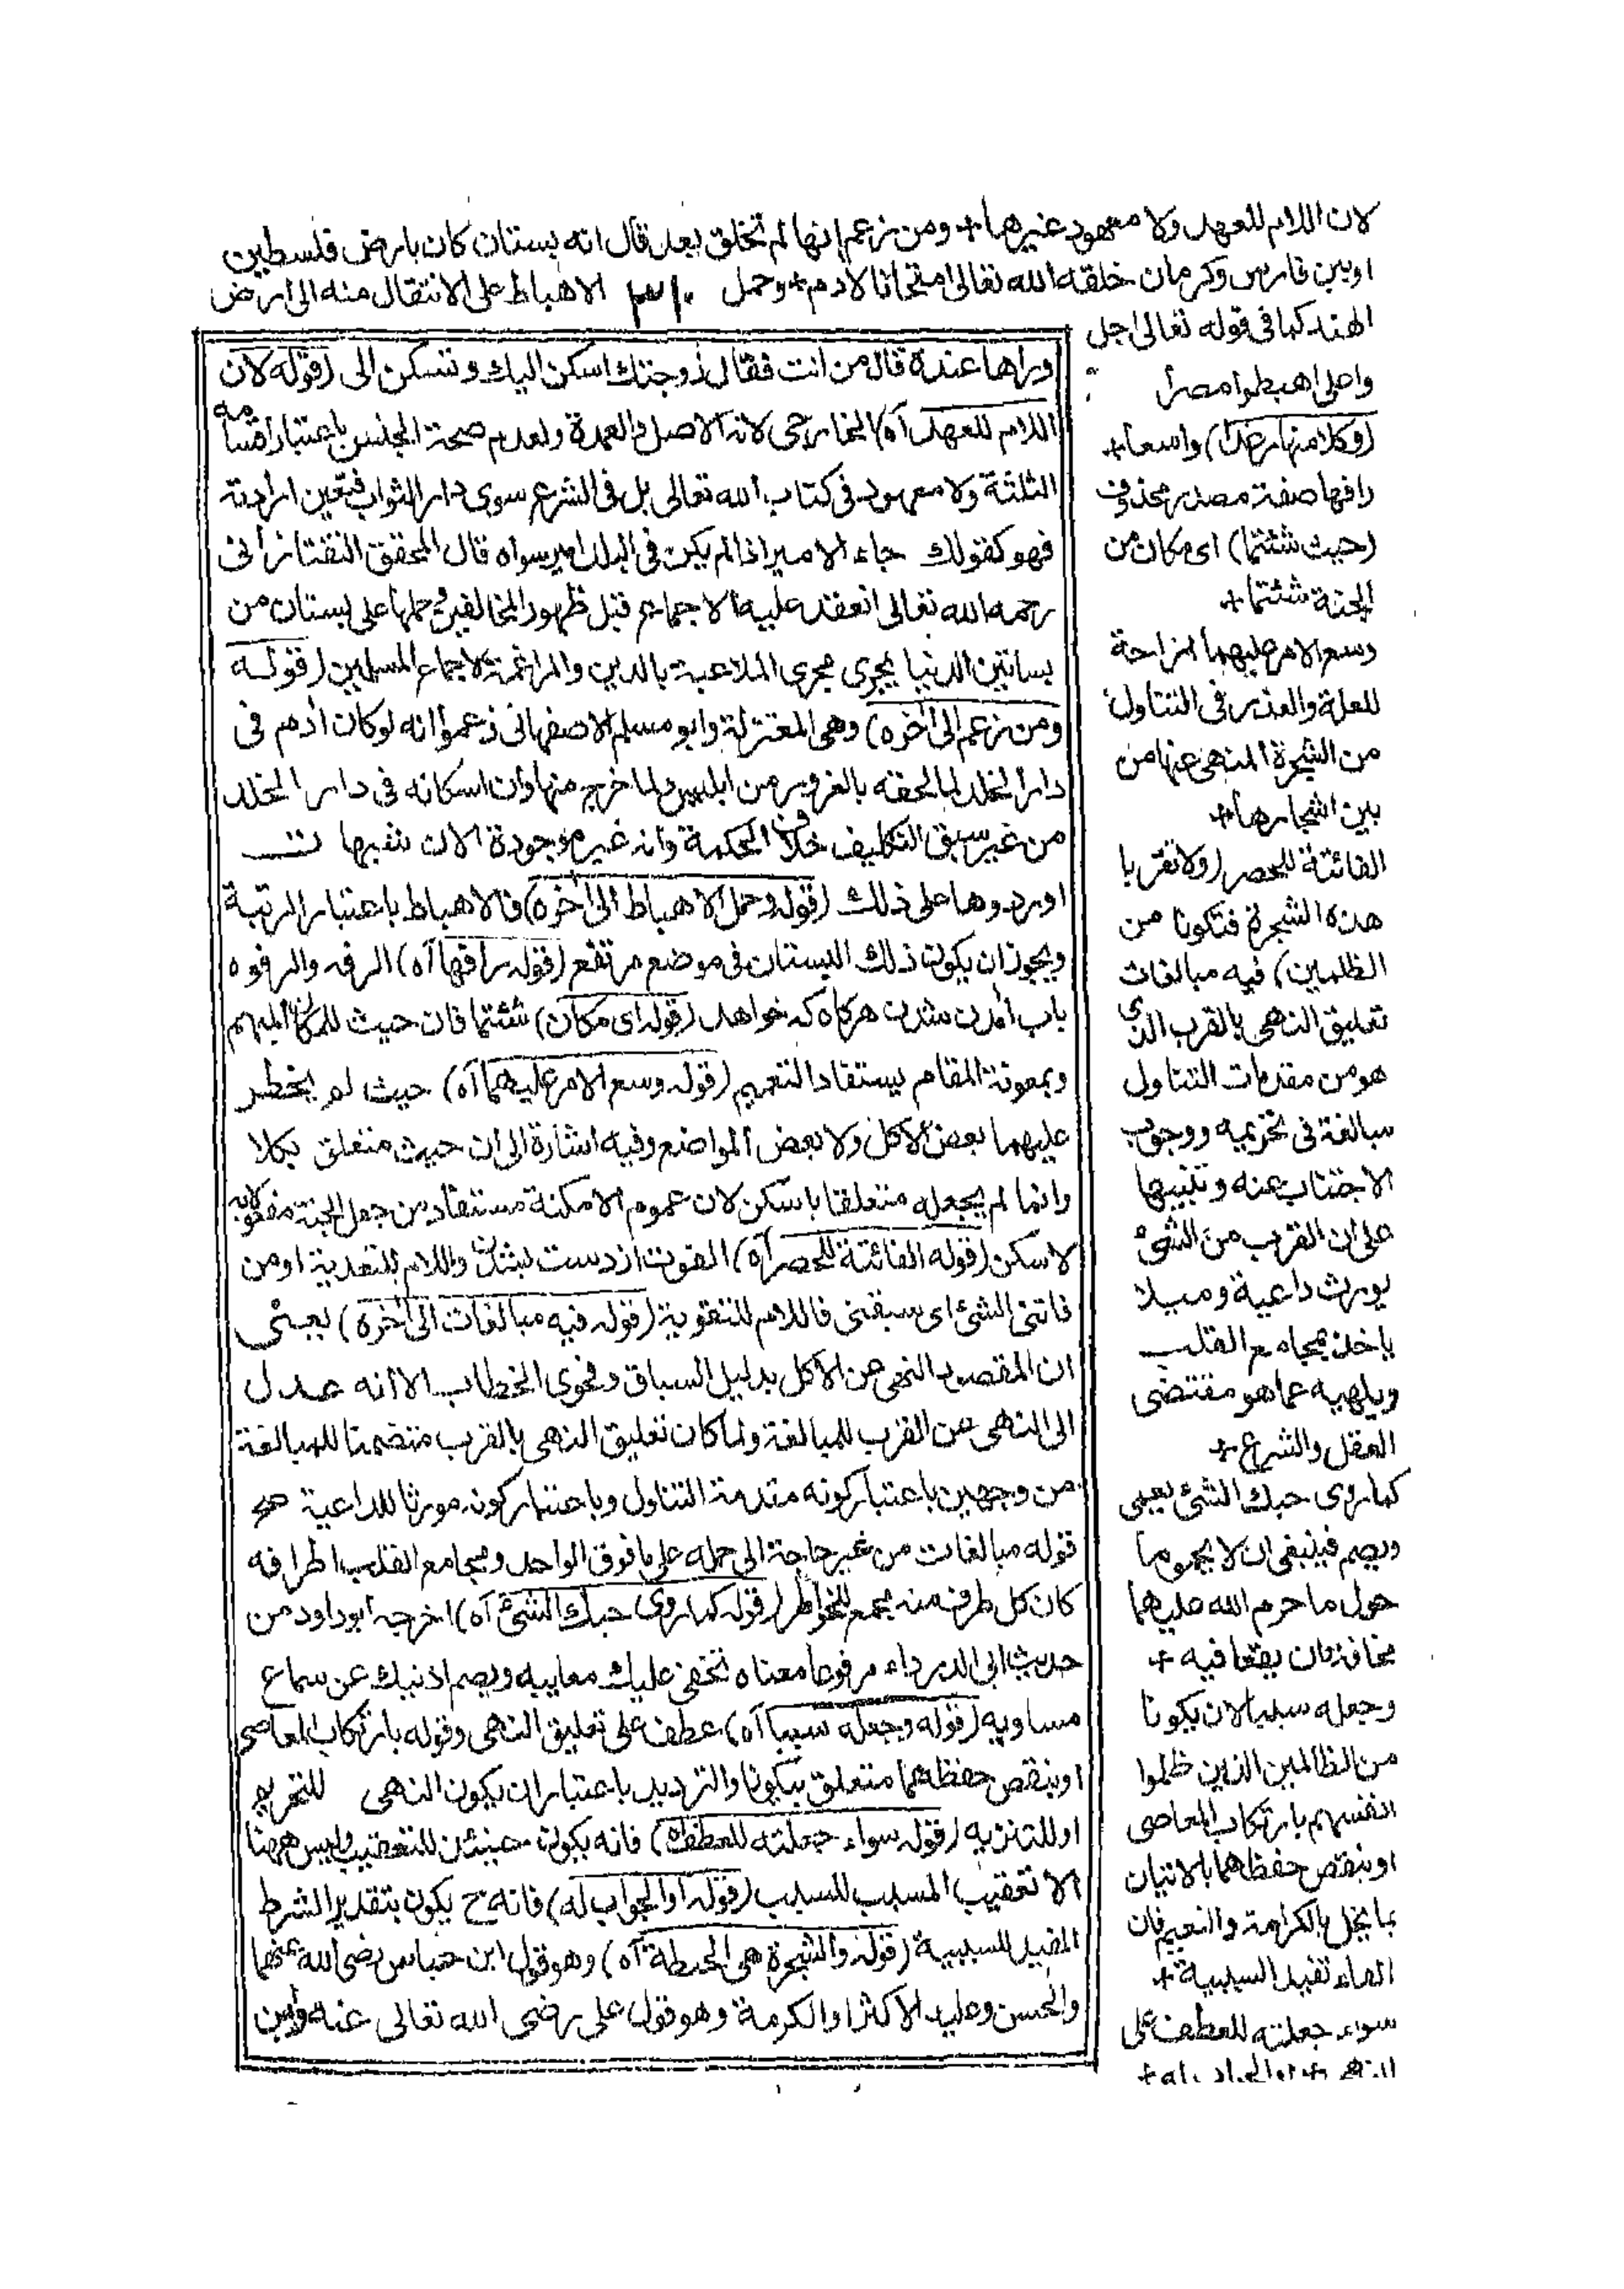 لان اللام للعهد ولا معهود غيرها+ ومن زعم انها لم تخلق بعد قال انه بستان كان بارض فلسطين
او بين فارس وكرمان خلقه الله تعالى امتحانا لادم+ وحمل ٣١٠ الاهباط على الانتقال منه الى ارض
الهند كما فى قوله تعالى اجل
واصلى اهبطوا مصرا
(وكلا منها رغدا) واسعا+
رافها صفة مصدر محذوف
(حيث شئتما) اى مكان من
الجنة شئتما+
وسع الامر عليهما ازاحة
للعلة والعذر فى التناول
من الشجرة المنهى عنها من
بين اشجارها+
الفائتة للحصر (ولا تقربا
هذه الشجرة فتكونا من
الظلمين) فيه مبالغات
تعليق النهى بالقرب الذى
هو من مقدمات التناول
مبالغة فى تحريمه ووجوب
الاجتناب عنه وتنبيها
على ان القرب من الشئ
يورث داعية وميلا
ياخذ بمجامع القلب
ويلهيه عما هو مقتضى
العقل والشرع+
كما روى حبك الشئ يعمى
ويصم فينبغى ان لا يحوما
حول ما حرم الله عليهما
مخافة ان يقعا فيه+
وجعله سببا لان يكونا
من الظالمين الذين ظلموا
انفسهم بارتكاب المعاصى
او بنقص حفظهما بالاتيان
بما يخل بالكرامة والنعيم فان
الفاء تفيد السببية+
سواء جعلته للعطف على
النهى+ او الجواب له+
وراها عنده قال من انت فقال زوجتك اسكن اليك وتسكن الى (قوله لان
اللام للعهد آه) الخارجى لانه الاصل والعمدة ولعدم صحة الجنس باعتبار اقسامه
الثلثة ولا معهود فى كتاب الله تعالى بل فى الشرع سوى دار الثواب فتعين ارادته
فهو كقولك جاء الامير اذا لم يكن فى البلد امير سواه قال المحقق التفتازانى
رحمه الله تعالى انعقد عليه الاجماع قبل ظهور المخالفين وحملها على بستان من
بساتين الدنيا يجرى مجرى الملاعبة بالدين والمراغمة لاجماع المسلمين (قوله
ومن زعم الى آخره) وهى المعتزلة وابو مسلم الاصفهانى زعموا انه لو كان ادم فى
دار الخلد لما لحقه بالغرور من ابليس ولما خرج منها وان اسكانه فى دار الخلد
من غير سبق التكليف خلاف الحكمة وانه غير موجودة الان بشبهات
اوردوها على ذلك (قوله وحمل الاهباط الى آخره) فالاهباط باعتبار الرتبة
ويجوز ان يكون ذلك البستان فى موضع مرتفع (قوله رافها آه) الرفه والرفوه
باب آمدن شدن هركاه كه خواهد (قوله اى مكان) شئتما فان حيث للمكان المبهم
وبمعونة المقام يستفاد التعميم (قوله وسع الامر عليهما آه) حيث لم يحظر
عليهما بعض الاكل ولا بعض المواضع وفيه اشارة الى ان حيث متعلق بكلا
وانما لم يجعله متعلقا باسكن لان عموم الامكنة مستفاد من جعل الجنة مفعولا به
لاسكن (قوله الفائتة للحصر آه) الفوت از دست بشدن واللام للتعدية او من
فاتنى الشئ اى سبقنى فاللام للتقوية (قوله فيه مبالغات الى آخره) يعنى
ان المقصود النهى عن الاكل بدليل السباق وفحوى الخطاب الا انه عدل
الى النهى عن القرب للمبالغة ولما كان تعليق النهى بالقرب متضمنا للمبالغة
من وجهين باعتبار كونه مقدمة التناول وباعتبار كونه مورثا للداعية صح
قوله مبالغات من غير حاجة الى حمله على ما فوق الواحد ومجامع القلب اطرافه
كان كل طرف منه مجمع للخواطر (قوله كما روى حبك الشئ آه) اخرجه ابو داود من
حديث ابى الدرداء مرفوعا معناه تخفى عليك معايبه ويصم اذنيك عن سماع
مساويه (قوله وجعله سببا آه) عطف على تعليق النهى وقوله بارتكاب المعاصى
او بنقص حفظهما متعلق بيكونا والترديد باعتبار ان يكون النهى للتحريم
او للتنزيه (قوله سواء جعلته للعطف آه) فانه يكون حينئذ للتعقيب وليس ههنا
الا تعقيب المسبب للسبب (قوله او الجواب له) فانه ح يكون بتقدير الشرط
المفيد للسببية (قوله والشجرة هى الحنطة آه) وهو قول ابن عباس رضى الله عنهما
والحسن وعليه الاكثر او الكرمة وهو قول على رضى الله تعالى عنه وابن